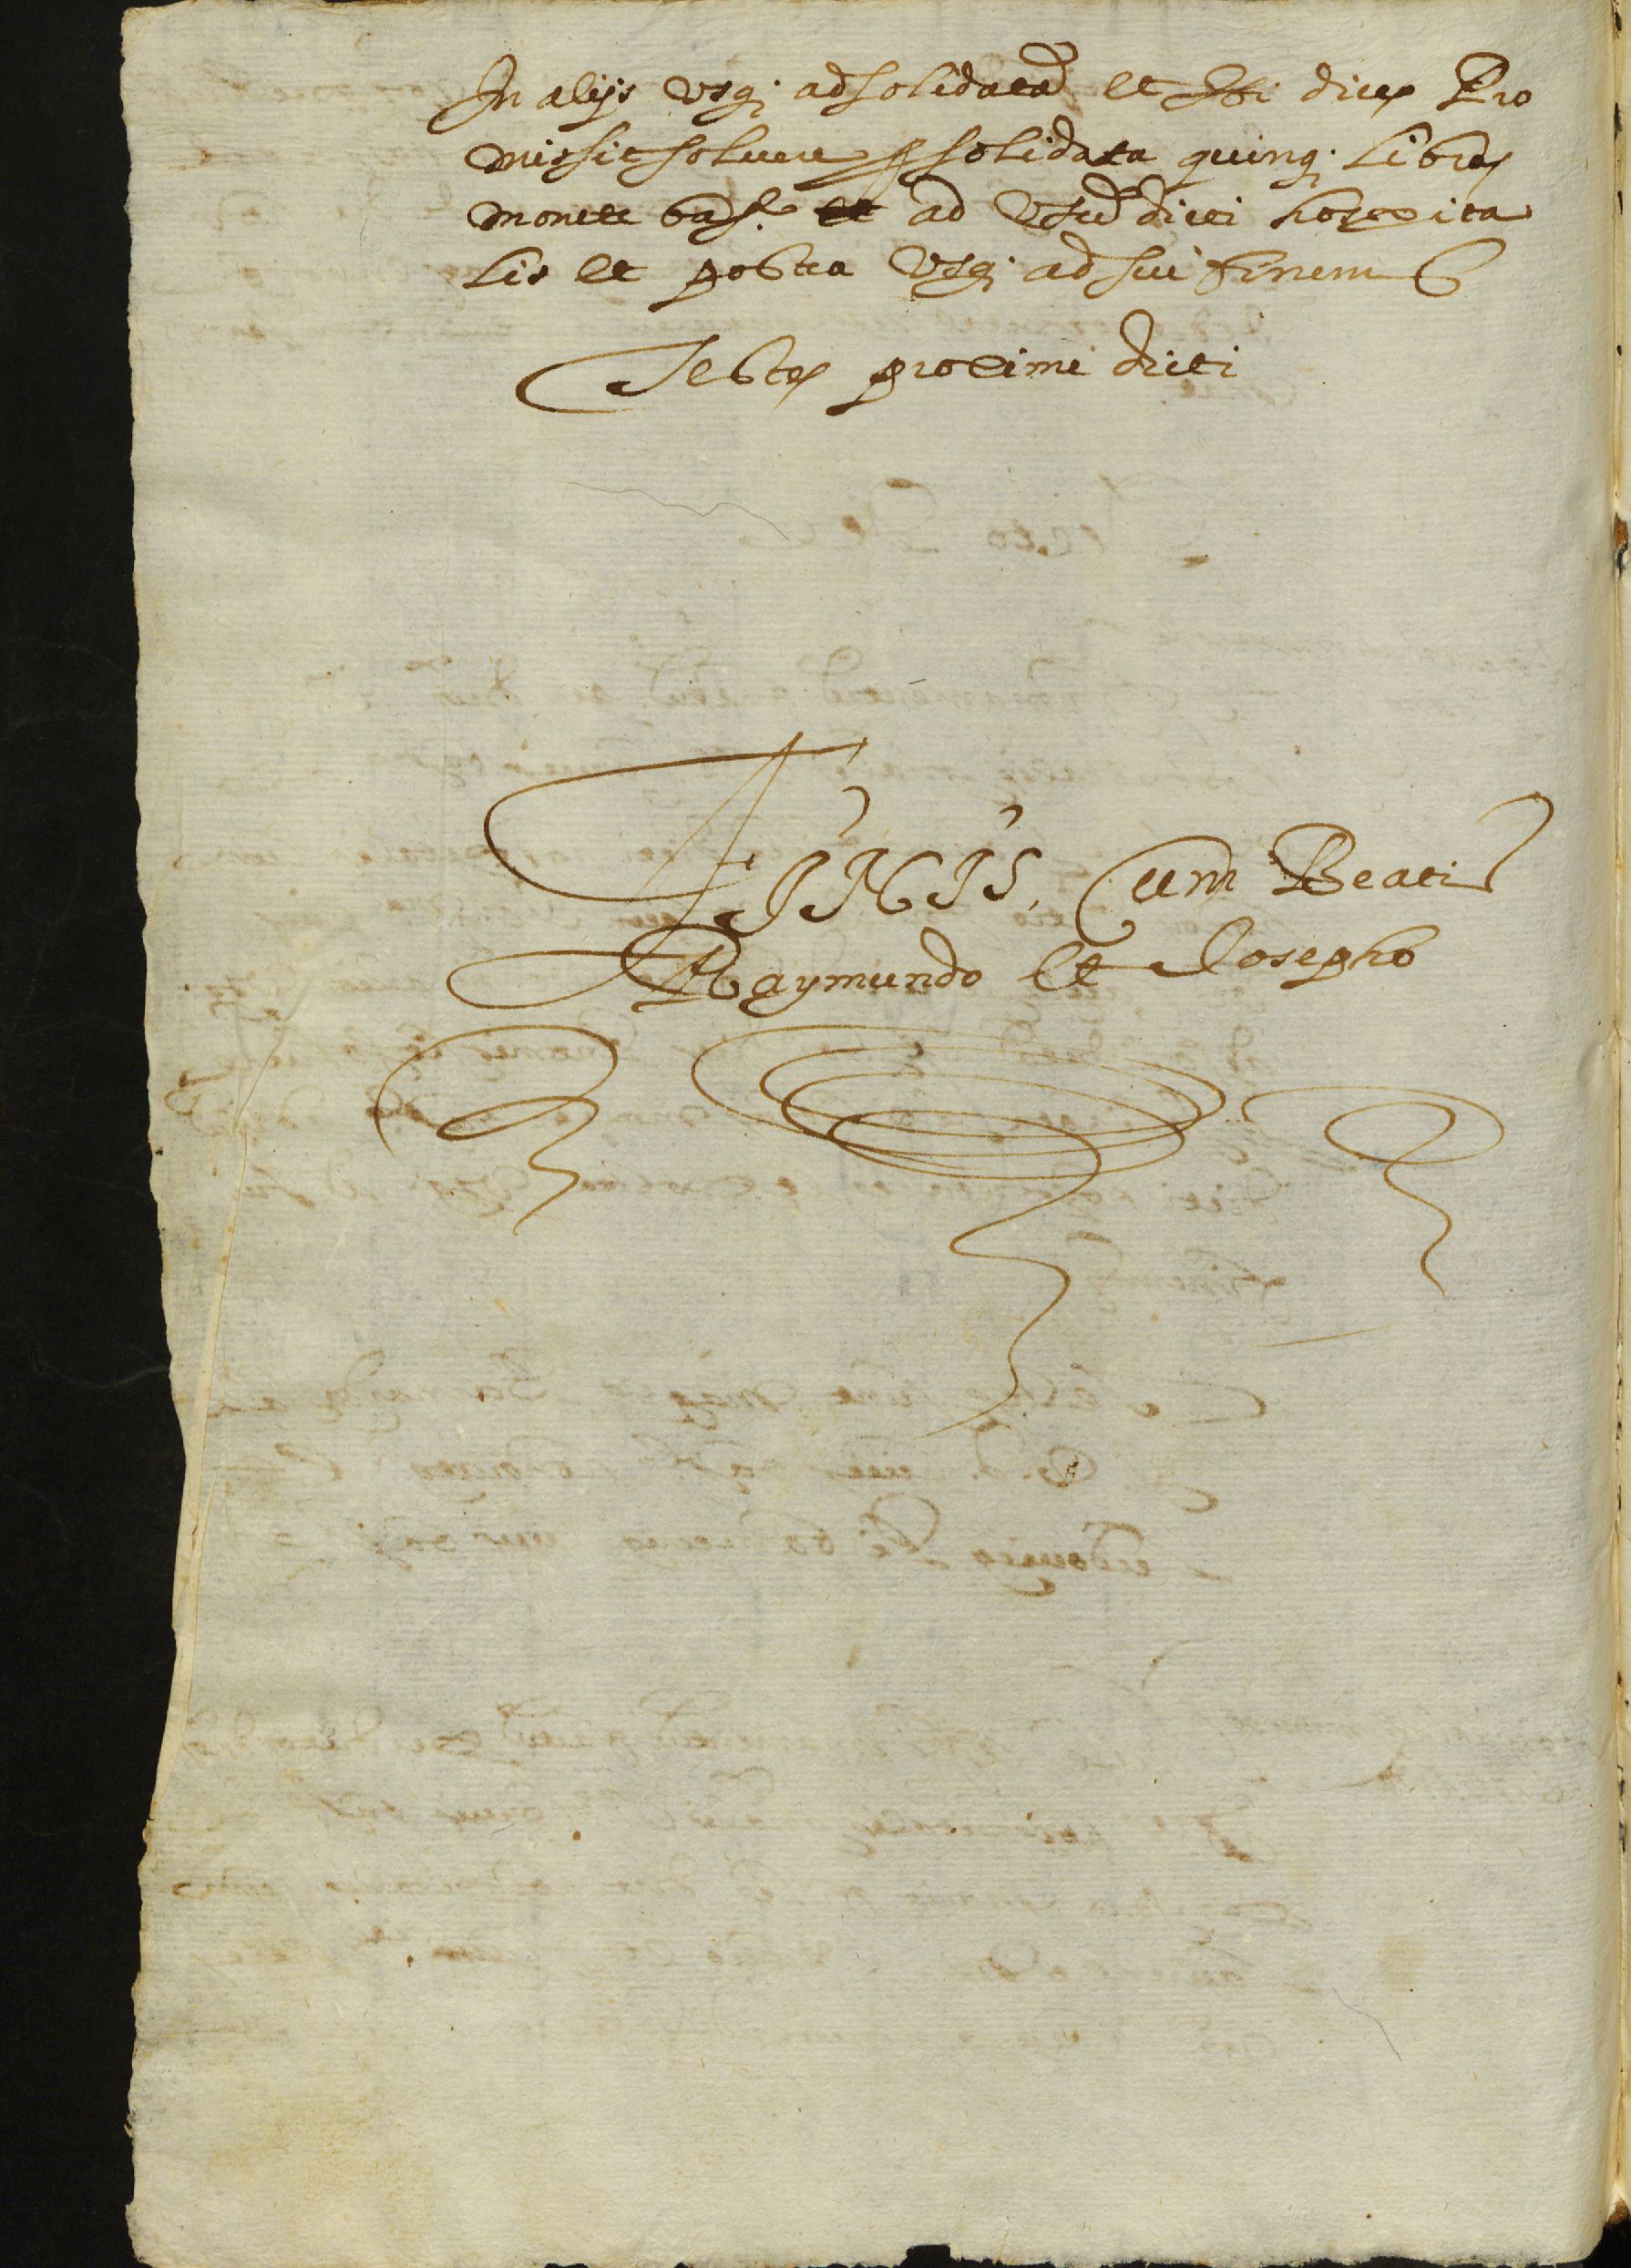 In alijs usq; ad solidatã et ibi dicęs Pro
missit soluere p solidata quinq; libras
monete barª ad usũ dicti hospita
lis et postea usq; ad sui finem
Testes proximi dicti
FINIS, Cum Beatis
Raymundo et Josepho